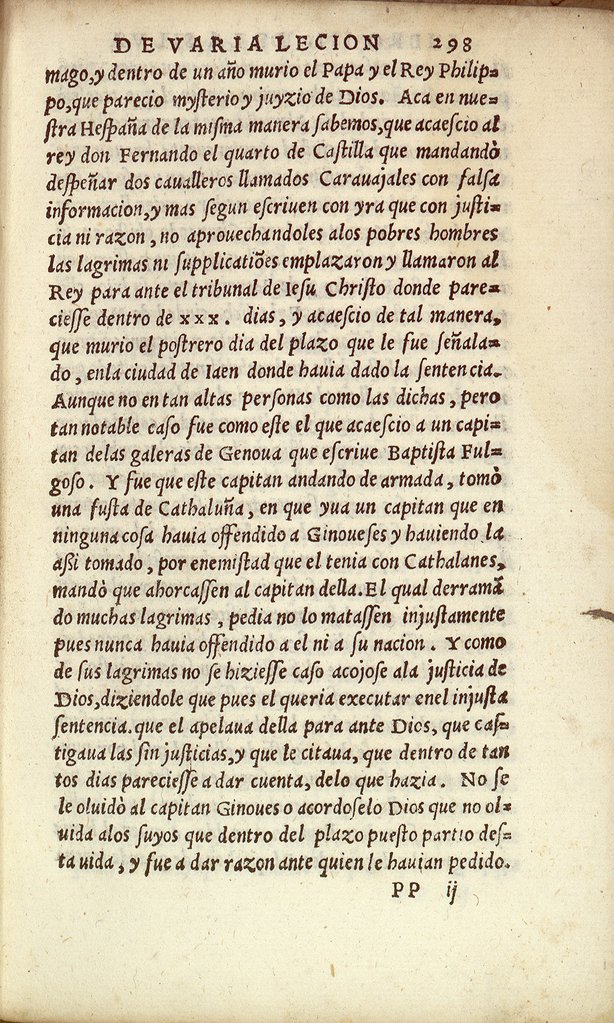 DE VARIA LECION 298
mago, y dentro de un año murio el Papa y el Rey Philip=
po, que parecio mysterio y juyzio de Dios. Aca en nue=
ſtra Heſpaña de la miſma manera ſabemos, que acaeſcio al
rey don Fernando el quarto de Caſtilla que mandandò
deſpeñar dos caualleros llamados Carauajales con falſa
informacion, y mas ſegun eſcriuen con yra que con juſti=
cia ni razon, no aprouechandoles alos pobres hombres
las lagrimas ni ſupplicatiões emplazaron y llamaron al
Rey para ante el tribunal de Ieſu Chriſto donde pare=
cieſſe dentro de xxx. dias, y acaeſcio de tal manera,
que murio el poſtrero dia del plazo que le fue ſeñala=
do, enla ciudad de Iaen donde hauia dado la ſentencia.
Aunque no en tan altas perſonas como las dichas, pero
tan notable caſo fue como eſte el que acaeſcio a un capi=
tan delas galeras de Genoua que eſcriue Baptiſta Ful=
goſo. Y fue que eſte capitan andando de armada, tomò
una fuſta de Cathaluña, en que yua un capitan que en
ninguna coſa hauia offendido a Ginoueſes y hauiendo la
aſsi tomado, por enemiſtad que el tenia con Cathalanes,
mandò que ahorcaſſen al capitan della. El qual derramã
do muchas lagrimas, pedia no lo mataſſen injuſtamente
pues nunca hauia offendido a el ni a ſu nacion. Y como
de ſus lagrimas no ſe hizieſſe caſo acojoſe ala juſticia de
Dios, diziendole que pues el queria executar enel injuſta
ſentencia. que el apelaua della para ante Dios, que caſ=
tigaua las ſin juſticias, y que le citaua, que dentro de tan
tos dias parecieſſe a dar cuenta, delo que hazia. No ſe
le oluidò al capitan Ginoues o acordoſelo Dios que no ol=
uida alos ſuyos que dentro del plazo pueſto partio deſ=
ta uida, y fue a dar razon ante quien le hauian pedido.
PP ij